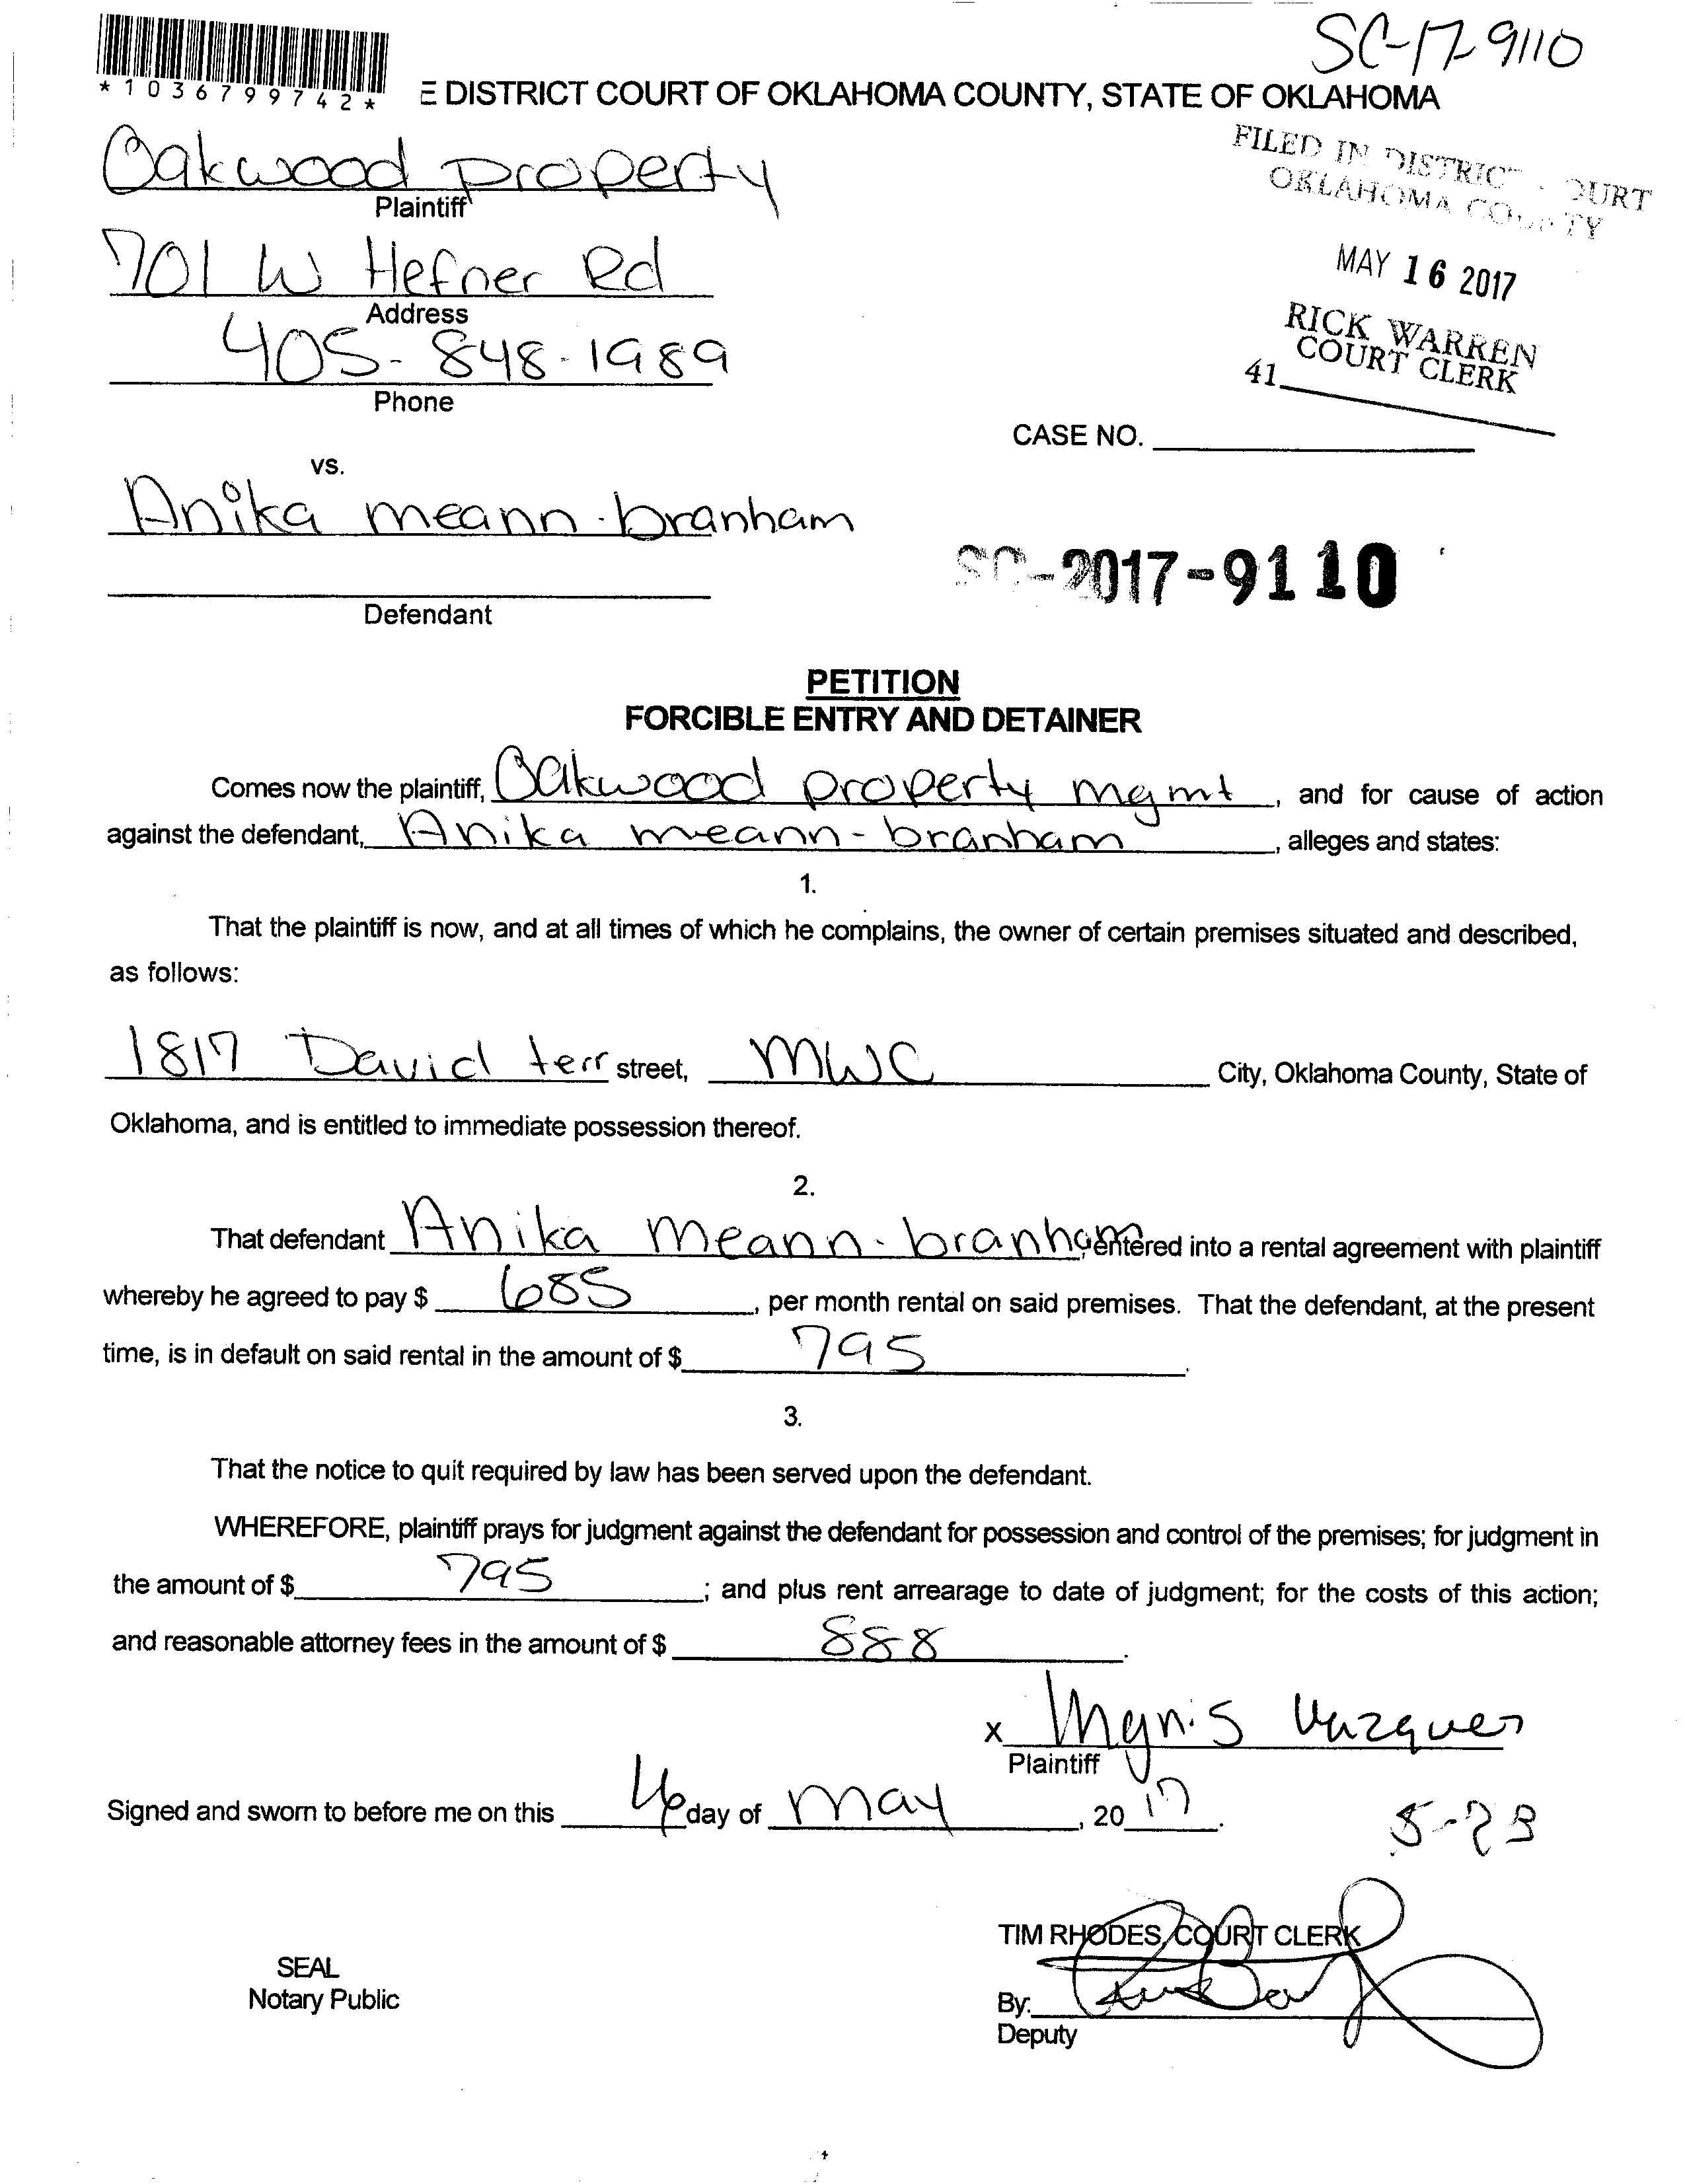 SC-17-9110
*1036799742*
E DISTRICT COURT OF OKLAHOMA COUNTY, STATE OF OKLAHOMA
Oakwood property
Plaintiff
FILED IN DISTRICT OURT
OKLAHOMA CO TY
701 W Hefner Rd
Address
MAY 16 2017
RICK WARREN
COURT CLERK
41
405-848-1989
Phone
CASE NO.
vs.
Anika meann-branham
Defendant
SC-2017-9110
PETITION
FORCIBLE ENTRY AND DETAINER
Comes now the plaintiff, Oakwood property mgmt, and for cause of action
against the defendant, Anika meann-branham, alleges and states:
1.
That the plaintiff is now, and at all times of which he complains, the owner of certain premises situated and described,
as follows:
1817 David terr street, MWC City, Oklahoma County, State of
Oklahoma, and is entitled to immediate possession thereof.
2.
That defendant Anika meann-branham, entered into a rental agreement with plaintiff
whereby he agreed to pay $ 685, per month rental on said premises. That the defendant, at the present
time, is in default on said rental in the amount of $ 795.
3.
That the notice to quit required by law has been served upon the defendant.
WHEREFORE, plaintiff prays for judgment against the defendant for possession and control of the premises; for judgment in
the amount of $ 795; and plus rent arrearage to date of judgment; for the costs of this action;
and reasonable attorney fees in the amount of $ 888.
X Vazquez
Plaintiff
Signed and sworn to before me on this day of May, 2017.
5-23
TIM RHODES, COURT CLERK
SEAL
Notary Public
By:
Deputy